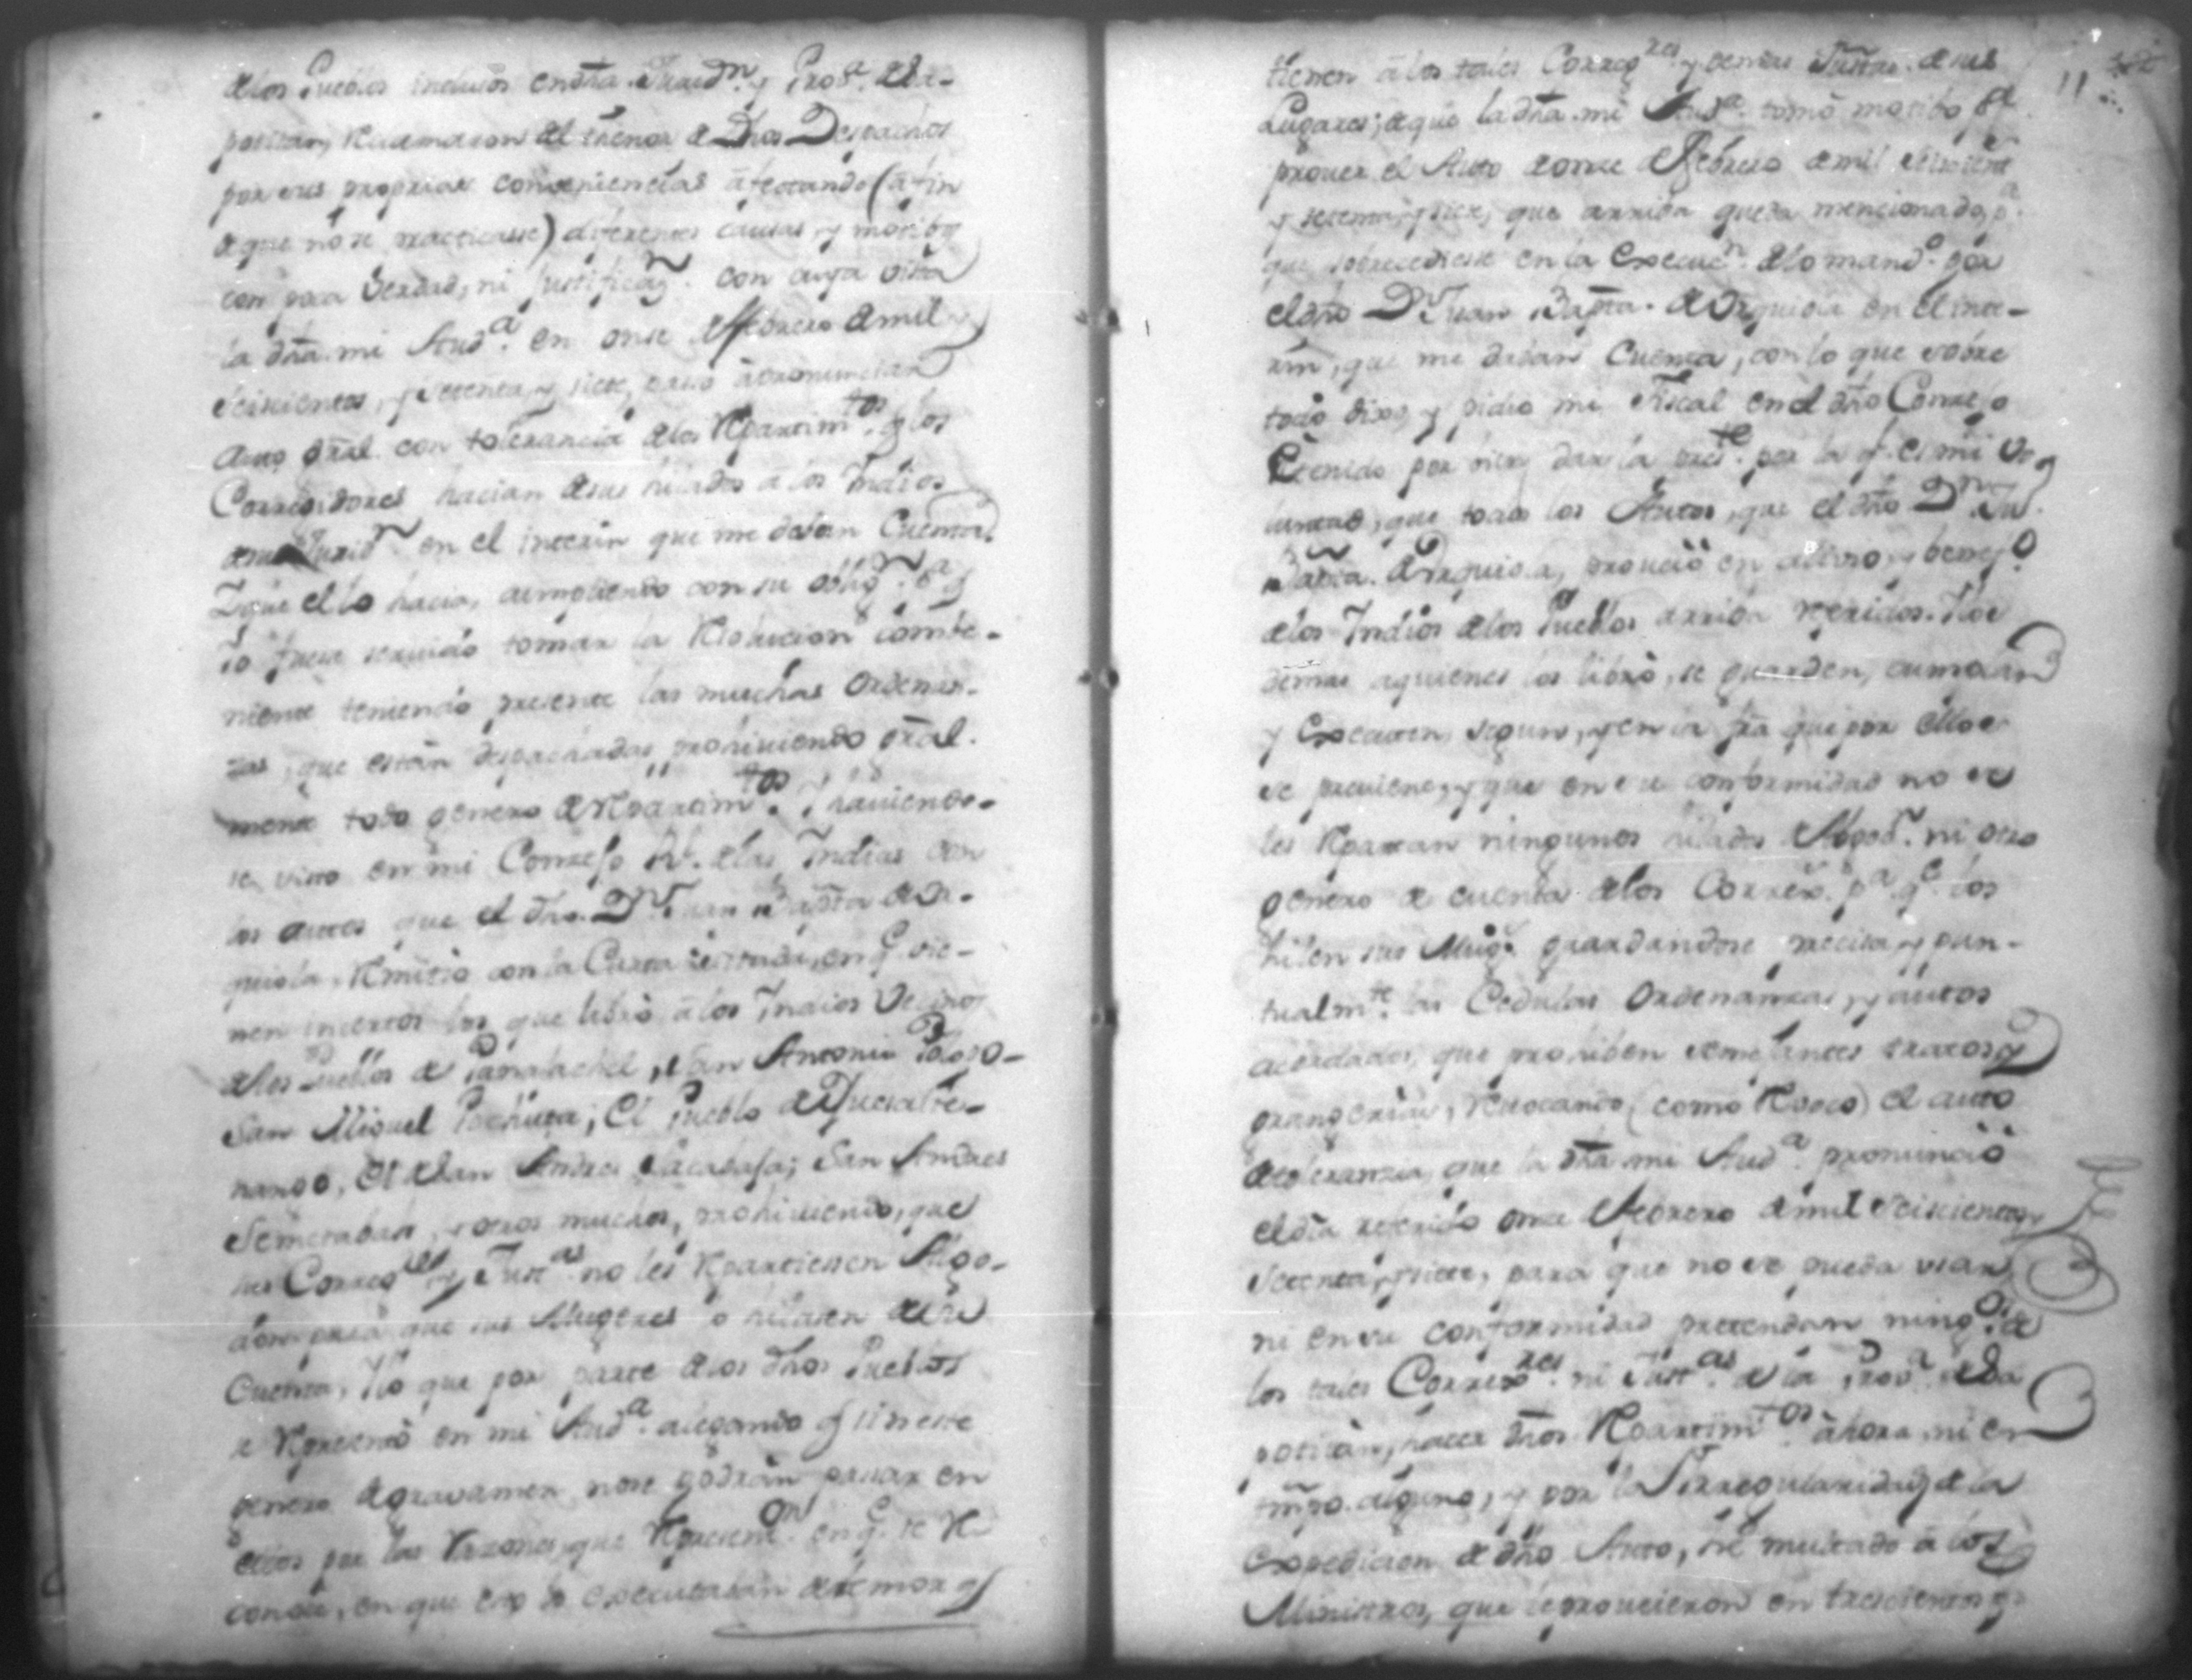 de los Pueblos inclusos en dha Jurisdn. y Prova. de la ca-
pitan, reclamaron del thenor de dhos Despachos
por sus proprias conveniencias afectando (a fin
de que no se practicasse) diferentes causas, y motibos
con poca verdad, ni justificazn. con cuya vista
la dha mi Auda. en onse de febrero de mil
seiscientos, y setenta y siete, passo a pronunciar
auto gñral con tolerancia de los Repartimtos. q los
Corregidores hacian de sus hilados a los Indios
de su Jurisdn en el interin que me daban Cuenta.
I que el lo hacia, cumpliendo con su oblign. pa. q
Io fuese servido tomar la Resolucion combe-
niente teniendo presente las muchas Ordenan-
zas, que están despachadas prohiviendo gñral-
mente todo genero de Repartimtos. Y haviendo-
se visto en mi Consejo Rl. de las Indias con
los autos que el dho. Dn Juan Bapta de Ur-
quiola, Remitio con la Carta zitada, en q vie-
nen insertos los que libró a los Indios Vecinos
de los Pueblos de Panahachel, San Antonio Palopo-
San Miguel Pochuta; El Pueblo de Quesalte-
nango, El de San Andres Sacabaja; San Andres
Semetabah, y otros muchos, prohiviendo, que
sus Corregres y Justas no les Repartiesen Algo-
don para que sus Mugeres lo hilasen de su
Cuenta, Y lo que por parte de los dhos Pueblos
se Representó en mi Auda. alegando q sin este
genero de gravamen no se podrán passar en
ellos por las Razones, que Representon. en q. se
considera, en que esto lo executaban de temor q
tienen a los tales Corregres. y demas Justas. de sus
Lugares; de que la dha mi Auda. tomó motibo pa
prouer el Auto de onse de Febrero de mil seiscients
y setenta, y siete, que arriba queda mencionado, pa.
que sobrecediese en la Execucn. de lo mando. por
el dho Dn Juan Bapta. de Urquiola en el inte-
rin, que me daban Cuenta, con lo que sobre
todo dixo, y pidió mi Fiscal en el dho Consejo
E tenido por vien dar la preste. por la q. es mi vo-
luntad, que todos los Autos, que el dho Dn Ju.
Bapta. de Urquiola, proueió en alivio, y benefo.
de los Indios de los Pueblos arriba referidos. Y los
demas a quienes los libró, se guarden, cumplan
y Executen, segun, y en la fra que por ellos
se preuiene, y que en su conformidad no se
les Repartan ningunos hilados de Algodn. ni otro
genero de cuenta de los Corregs. pa. qe. los
hilen sus Mugs. guardandose precisa, y pun-
tualmte. las Cedulas Ordenanzas, y autos
acordados, que prohiben semejantes tratos, y
grangerias, Reuocando (como Reuoco) el auto
de toleranzia, que la dha mi Auda. pronunció
el dia referido onse de febrero de mil seiscientos
setenta, y siete, para que no se pueda vsar
ni en su conformidad pretendan ningos. de
los tales Corregres. ni Justas. de la Prova. de la ca
pitan, hacer dhos Repartimtos. ahora, ni en
tmpo. alguno, y por la Irregularidad de la
Expedicion de dho Auto, he multado a los
Ministros, que le proueieron en trescientos ps